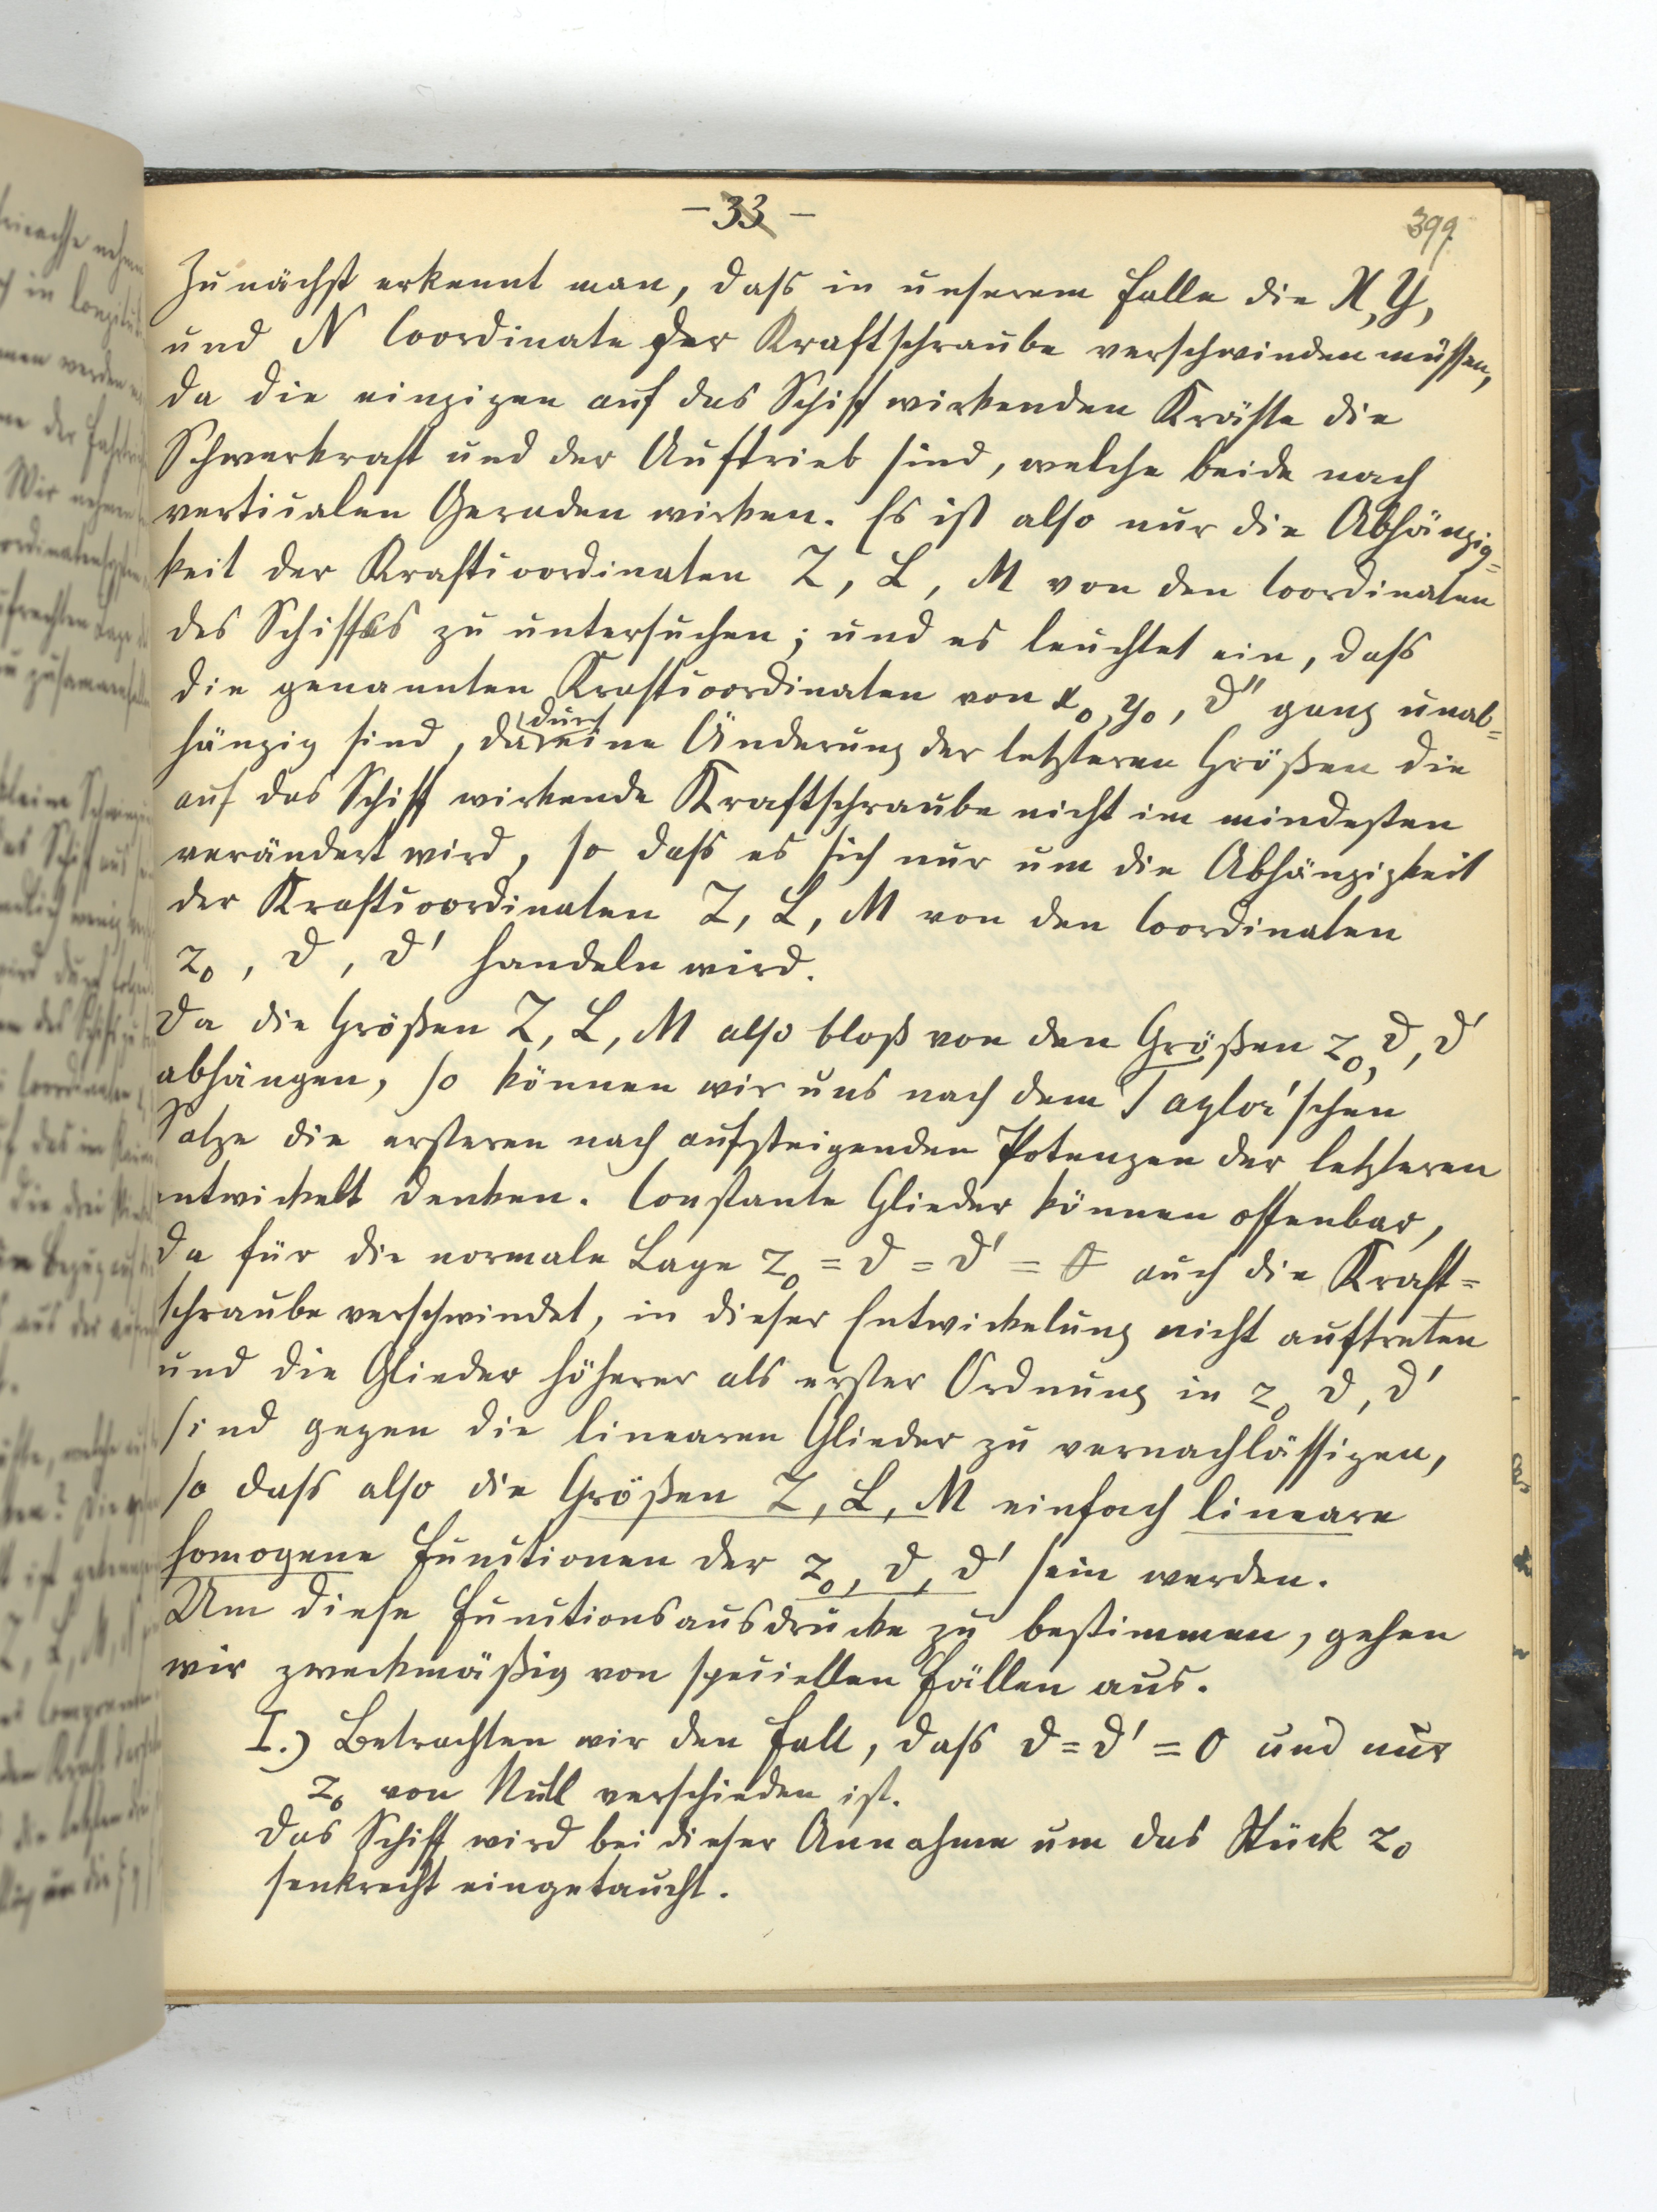 – 33 –
399
Zunächst erkennt man, dass in unserem Falle die X, Y,
und N Coordinate der Kraftschraube verschwinden müssen,
da die einzigen auf das Schiff wirkenden Kräfte die
Schwerkraft und der Auftrieb sind, welche beide nach
verticalen Geraden wirken. Es ist also nur die Abhängig=
keit der Kraftcoordinaten Z, L, M von den Coordinaten
des Schiffes zu untersuchen; und es leuchtet ein, dass
die genannten Kraftcoordinaten von x₀, y₀, ϑ'' ganz unab=
hängig sind, da durch eine Änderung der letzteren Größen die
auf das Schiff wirkende Kraftschraube nicht im mindesten
verändert wird, so dass es sich nur um die Abhängigkeit
der Kraftcoordinaten Z, L, M von den Coordinaten
z₀, ϑ, ϑ' handeln wird.
Da die Größen Z, L, M also bloß von den Größen z₀, ϑ, ϑ'
abhängen, so können wir uns nach dem Taylor'schen
Satze die ersteren nach aufsteigenden Potenzen der letzteren
entwickelt denken. Constante Glieder können offenbar,
da für die normale Lage z₀ = ϑ = ϑ' = 0 auch die Kraft=
schraube verschwindet, in dieser Entwickelung nicht auftreten
und die Glieder höherer als erster Ordnung in z₀ ϑ, ϑ'
sind gegen die linearen Glieder zu vernachlässigen,
so dass also die Größen Z, L, M einfach lineare
homogene Functionen der z₀, ϑ, ϑ' sein werden.
Um diese Functionsausdrücke zu bestimmen, gehen
wir zweckmäßig von speciellen Fällen aus.
I.) Betrachten wir den Fall, dass ϑ = ϑ' = 0 und nur
z₀ von Null verschieden ist.
Das Schiff wird bei dieser Annahme um das Stück z₀
senkrecht eingetaucht.